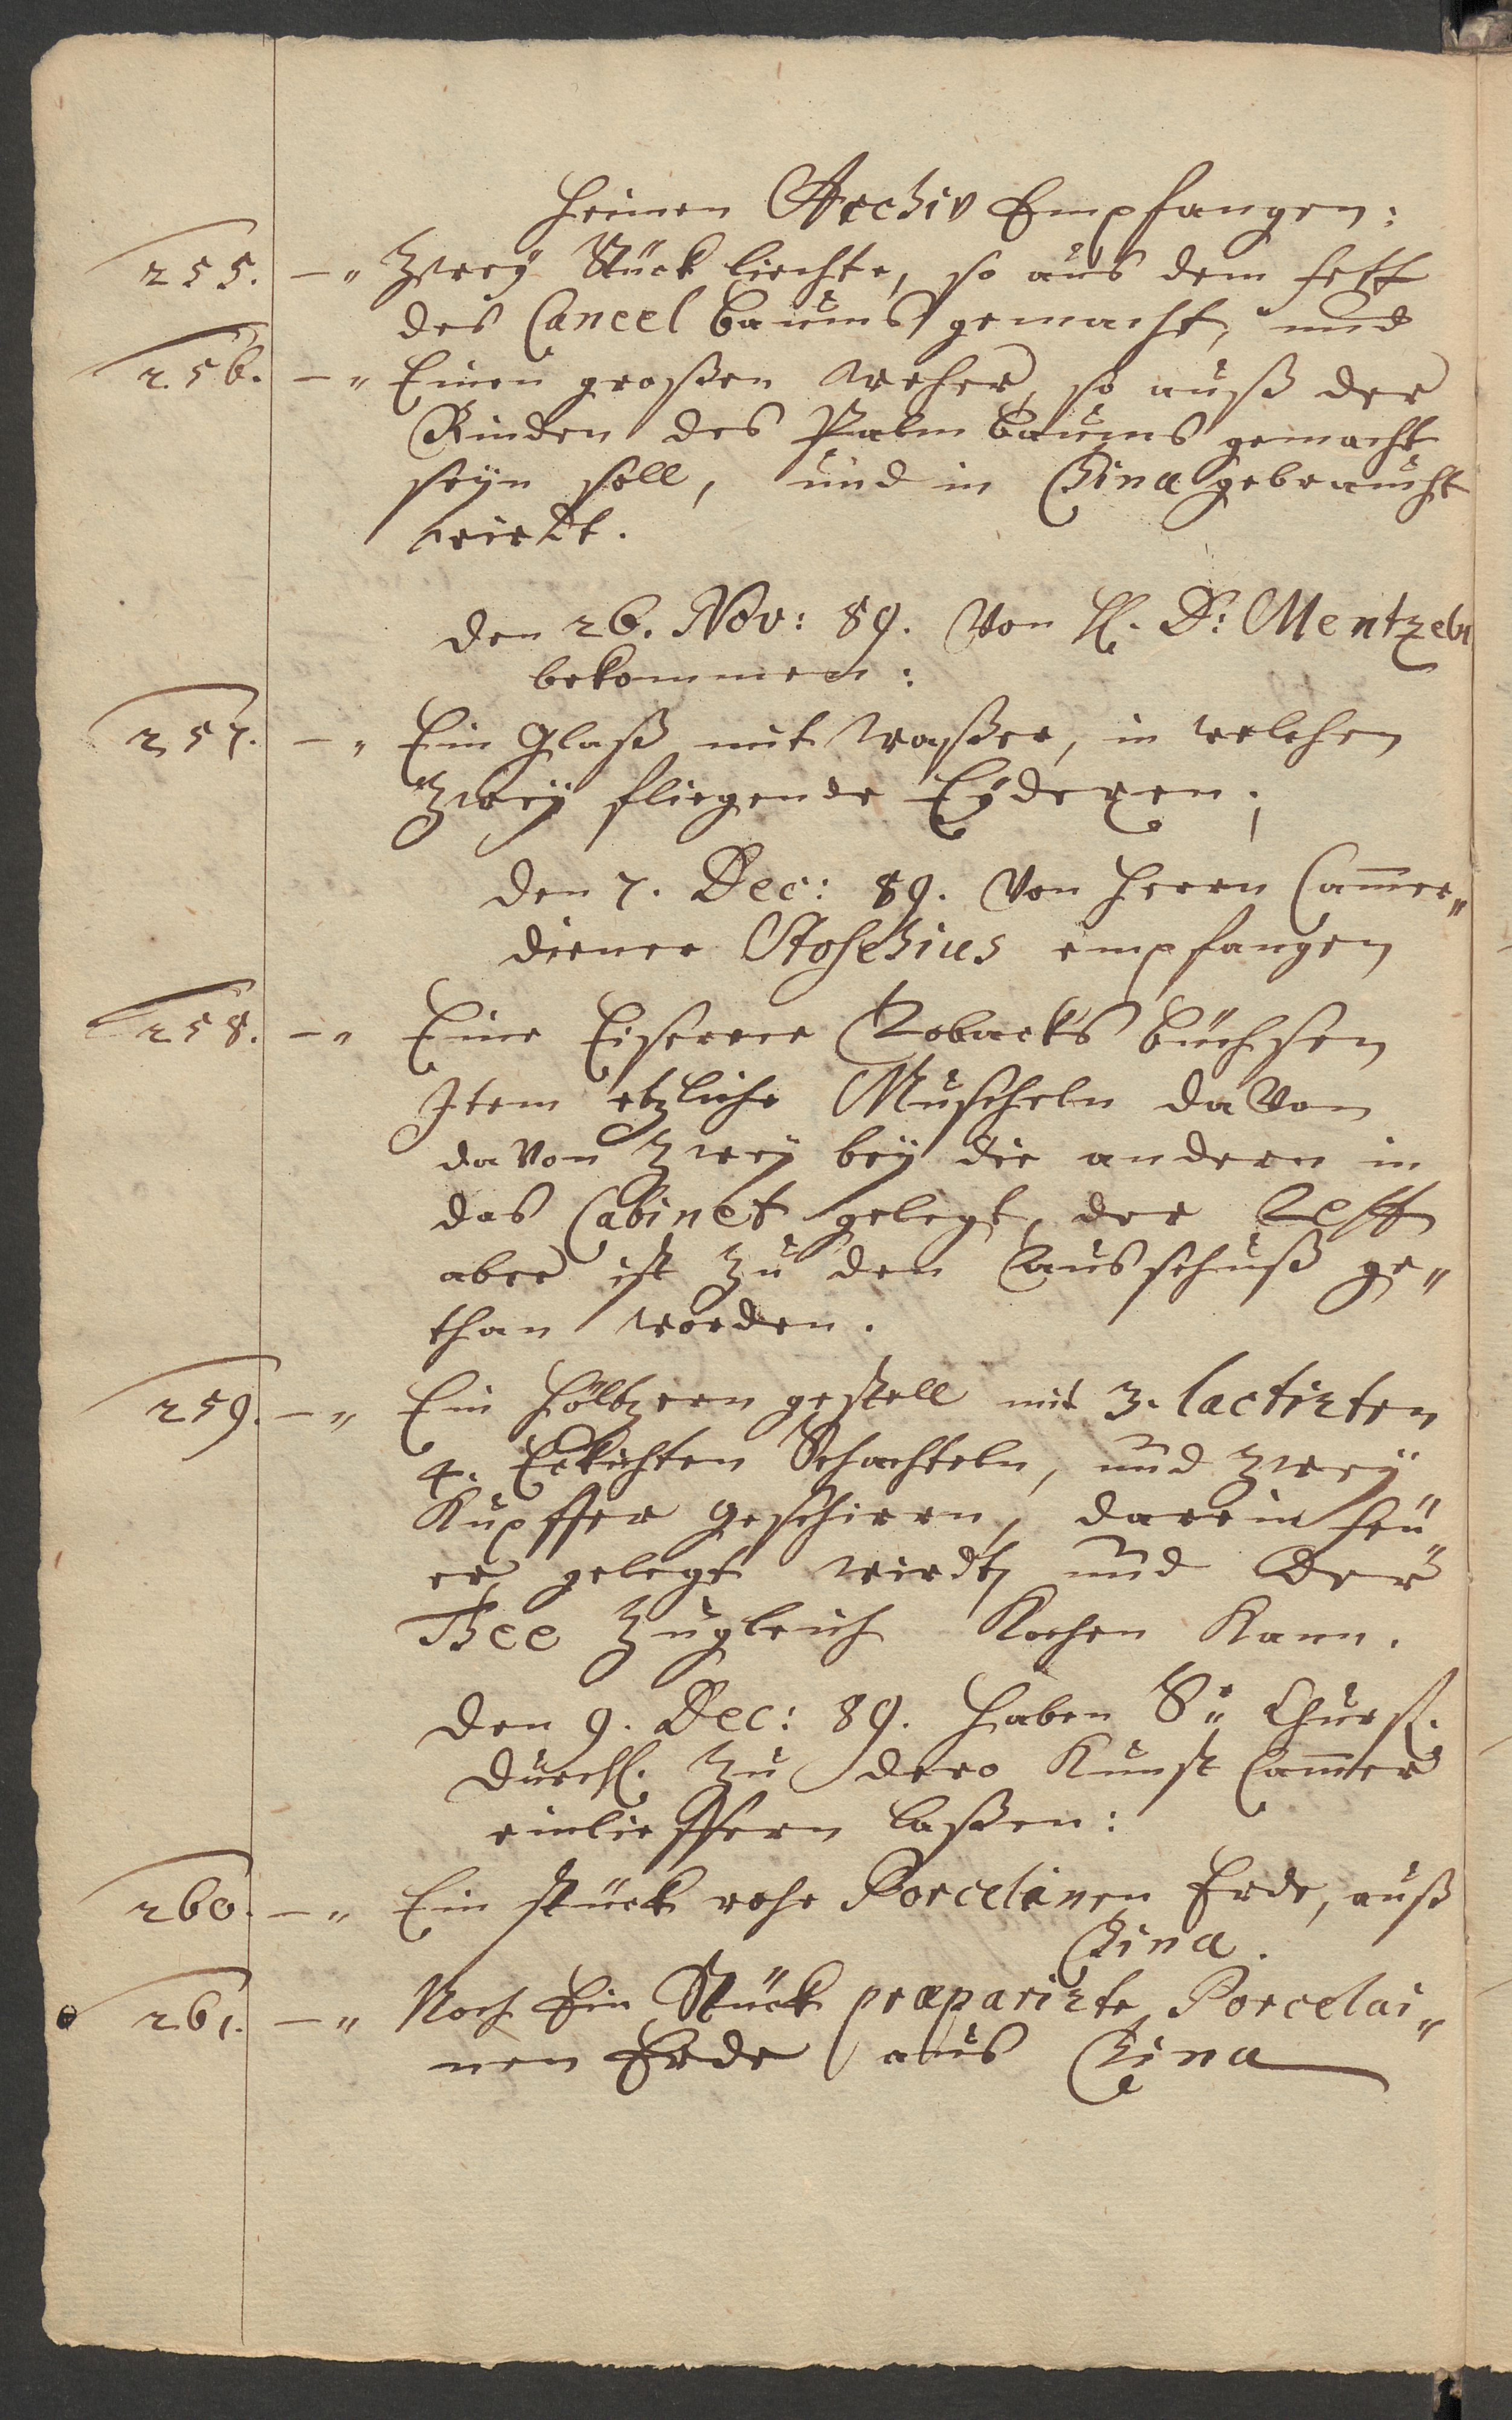 heimen Archiv Empfangen:
255. -„ Zweÿ Stück liechte, so aus dem fett
des Caneel baums gemacht, und
256. -„ Einen großen weher, so auß der
Rinden des Palm baums gemacht
seyn soll, und in China gebraucht
wirdt.
den 26. Nov: 89. Von H. D: Mentzeln
bekommen:
257. -„ Ein Glaß mit Waßer, in welchen
Zweÿ fliegende Eÿdexen;
den 7. Dec: 89. Von Herrn Cammer„
diener Stoschius empfangen
258. -„ Eine Eiserne Tobacks büchsen
Item etzliche Muscheln davon
davon Zweÿ beÿ die andern in
das Cabinet gelegt, der Rest
aber ist zu den Ausschuß ge„
than worden.
259. -„ Ein höltzern gestell mit 3. lactirten
4. Eckichten Schachteln, und Zweÿ
Kupffer geschirrn, darein feü
er gelegt wirdt, und der
Thee zugleich Kochen Kann.
den 9. Dec: 89. haben Sr Churfl.
Durchl. zu dero Kunst Cammer
einlieffern laßen:
260. -„ Ein stück rohe Porcelainen Erde, auß
China.
261. -„ Noch Ein Stück præparirte Porcelai„
nen Erde aus China